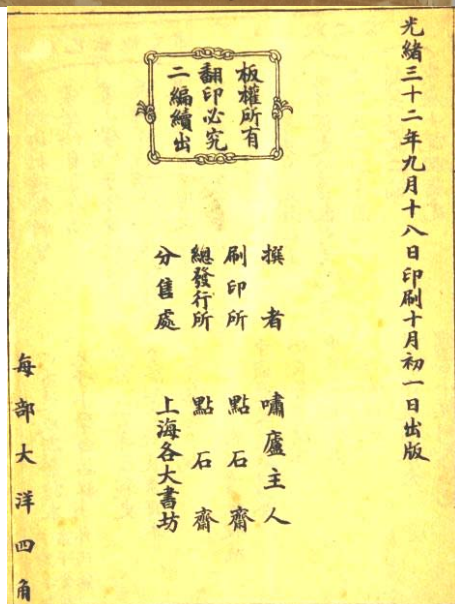 光緒三十二年九月十八日印刷十月初一日出版
板權所有
翻印必究
二編續出
撰者 嘯廬主人
刷印所 點石齋
總發行所 點石齋
分售處 上海各大書坊
每部大洋四角